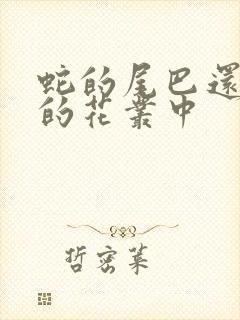 蛇的尾巴還
的花叢中
哲密萊